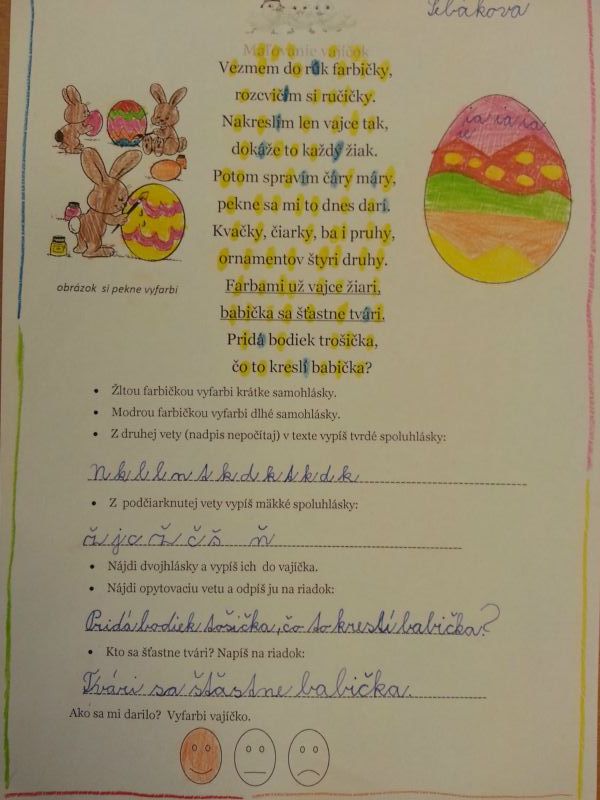 Maľovanie vajíčok
Vezmem do rúk farbičky,
rozcvičím si ručičky.
Nakreslím len vajce tak,
dokáže to každý žiak.
Potom spravím čáry máry,
pekne sa mi to dnes darí.
Kvačky, čiarky, ba i pruhy,
ornamentov štyri druhy.
Farbami už vajce žiari,
babička sa šťastne tvári.
Pridá bodiek trošička,
čo to kreslí babička?
obrázok si pekne vyfarbi
ia ia ia
ie
• Žltou farbičkou vyfarbi krátke samohlásky.
• Modrou farbičkou vyfarbi dlhé samohlásky.
• Z druhej vety (nadpis nepočítaj) v texte vypíš tvrdé spoluhlásky:
n k l l n t k d k t k d k
• Z podčiarknutej vety vypíš mäkké spoluhlásky:
ž j c ž č š ň
• Nájdi dvojhlásky a vypíš ich do vajíčka.
• Nájdi opytovaciu vetu a odpíš ju na riadok:
Pridá bodiek tošička, čo to kreslí babička?
• Kto sa šťastne tvári? Napíš na riadok:
Tvári sa šťastne babička.
Ako sa mi darilo? Vyfarbi vajíčko.